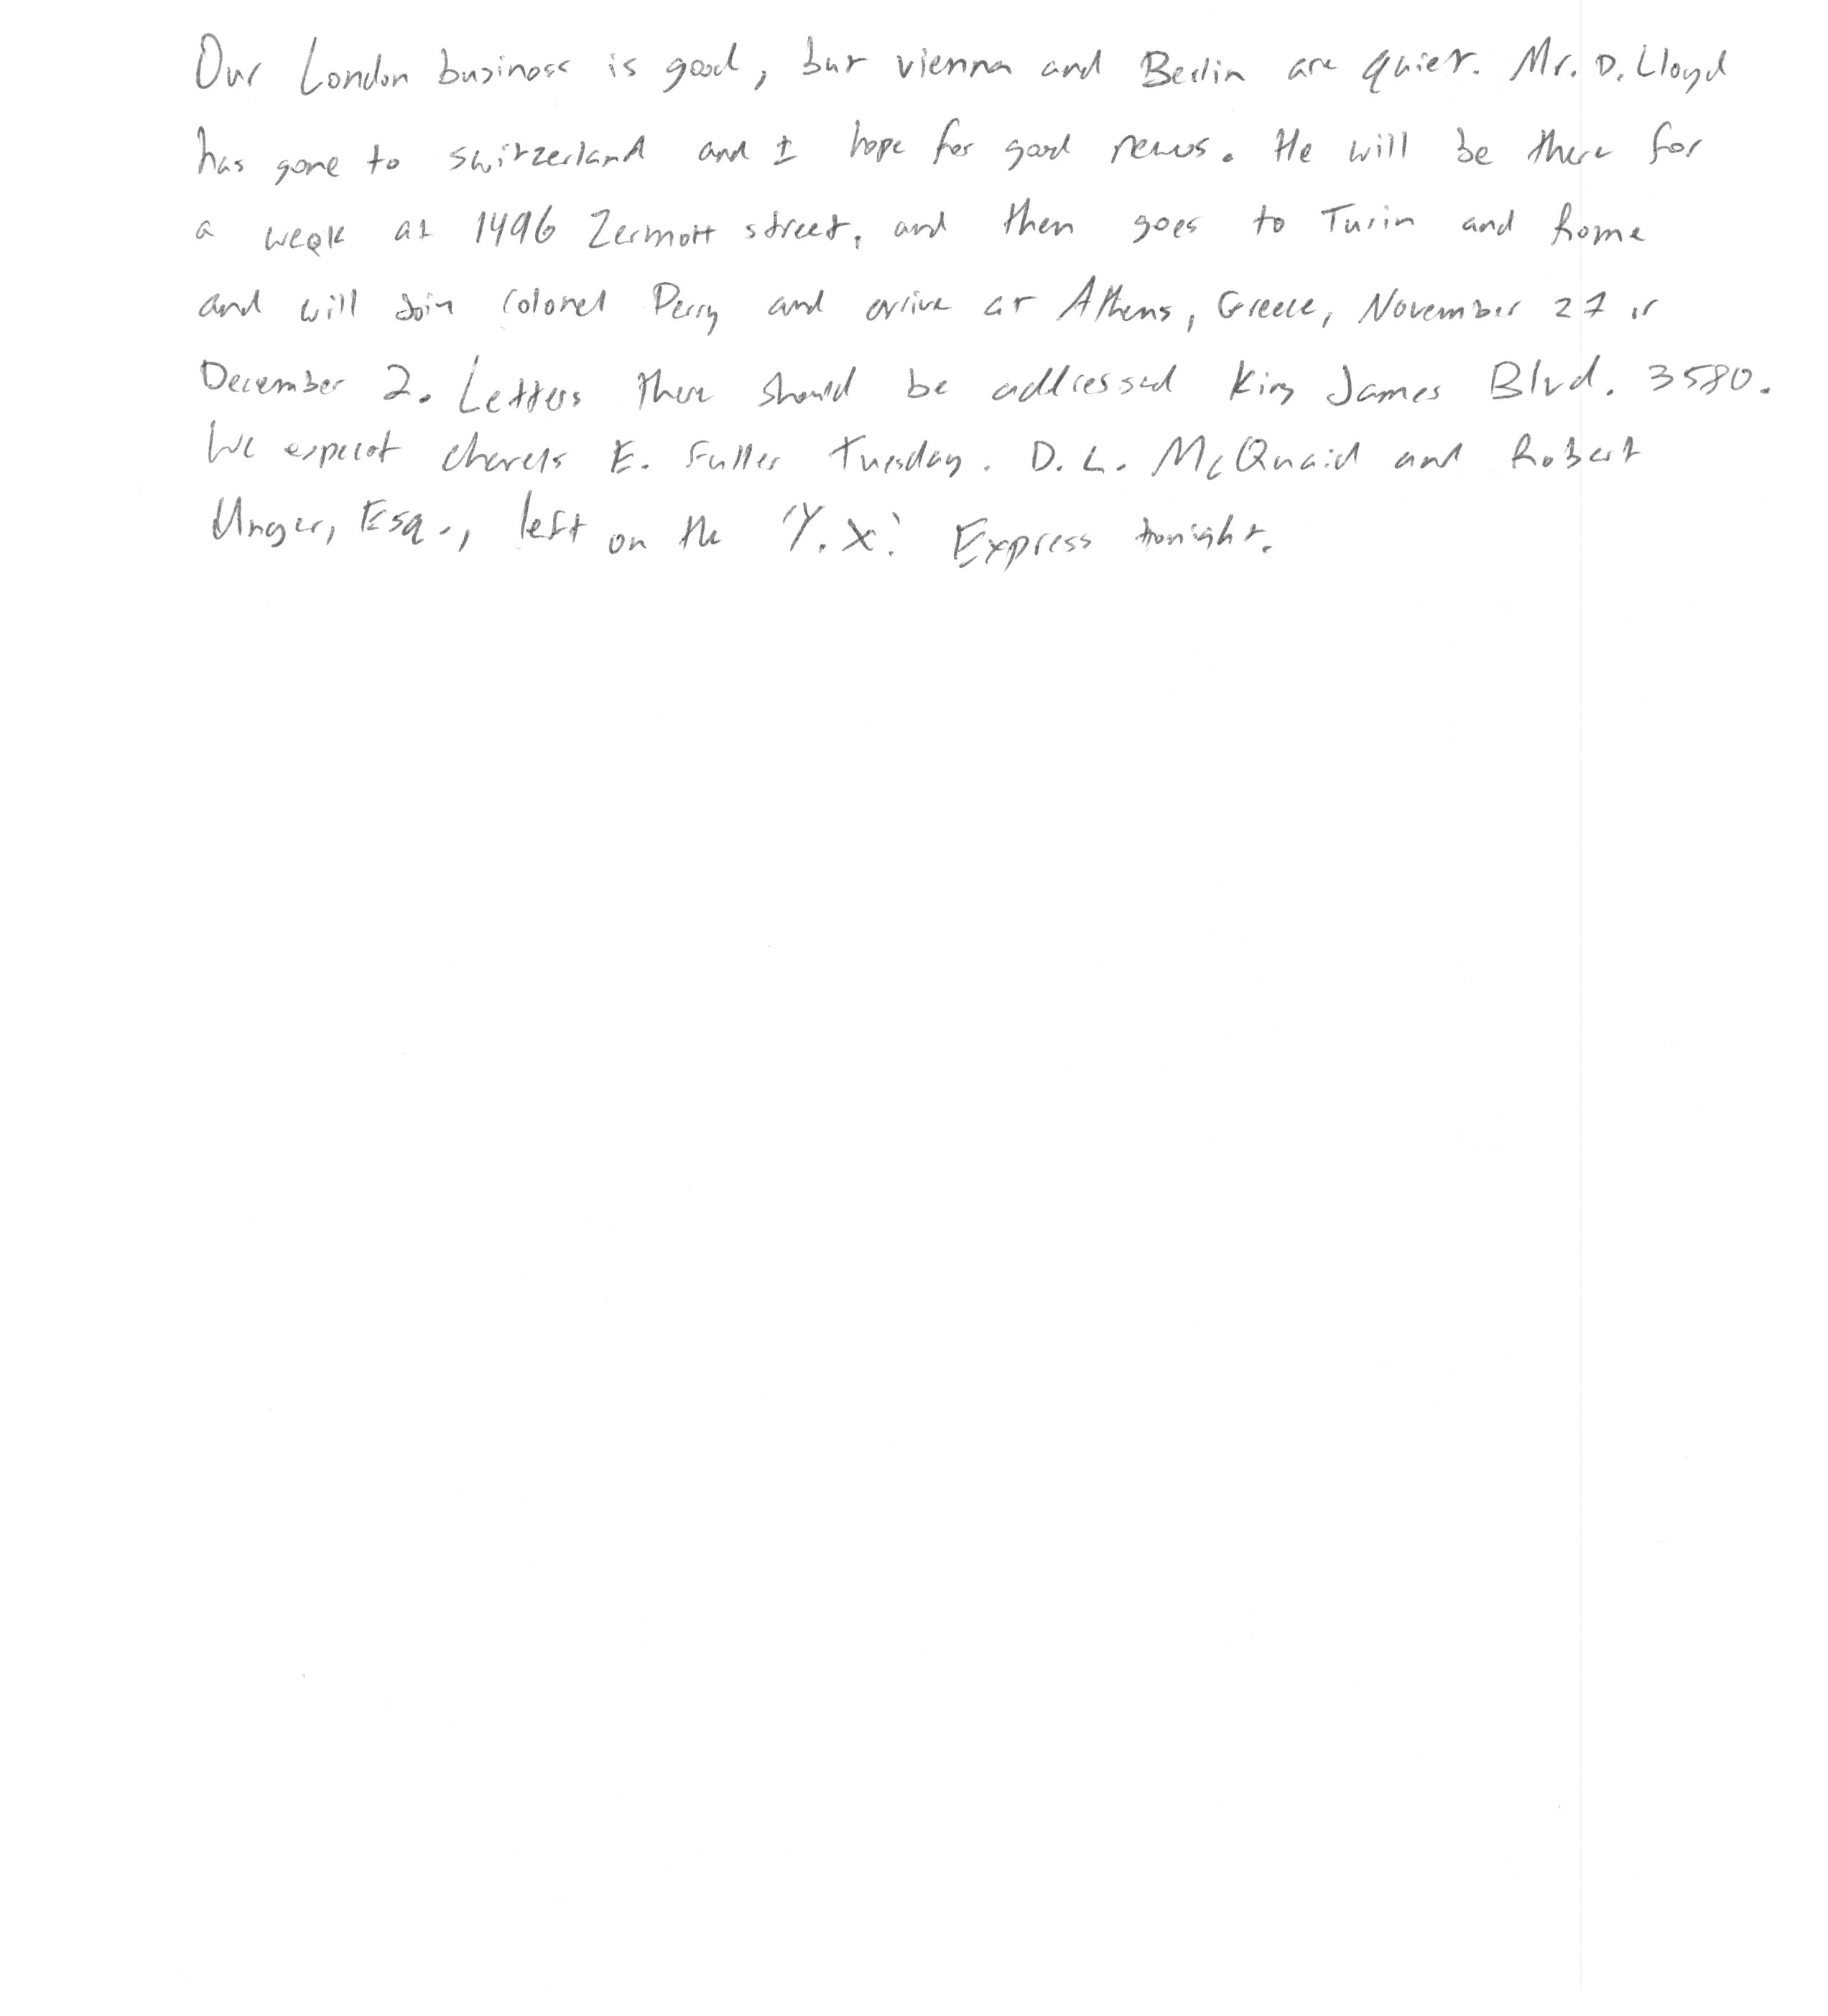 Our London business is good, but vienna and Berlin are quiet. Mr. D. Lloyd
has gone to switzerland and I hope for good news. He will be there for
a week at 1496 Zermott street, and then goes to Turin and Rome
and will Join Colonel Perry and arrive at Athens, Greece, November 27 or
December 2. Letters there should be addressed King James Blvd. 3580.
We expecot charels E. Fuller Tuesday. D. L. McQuaid and Robert
Unger, Esq., left on the 'Y.X.' Express tonight.